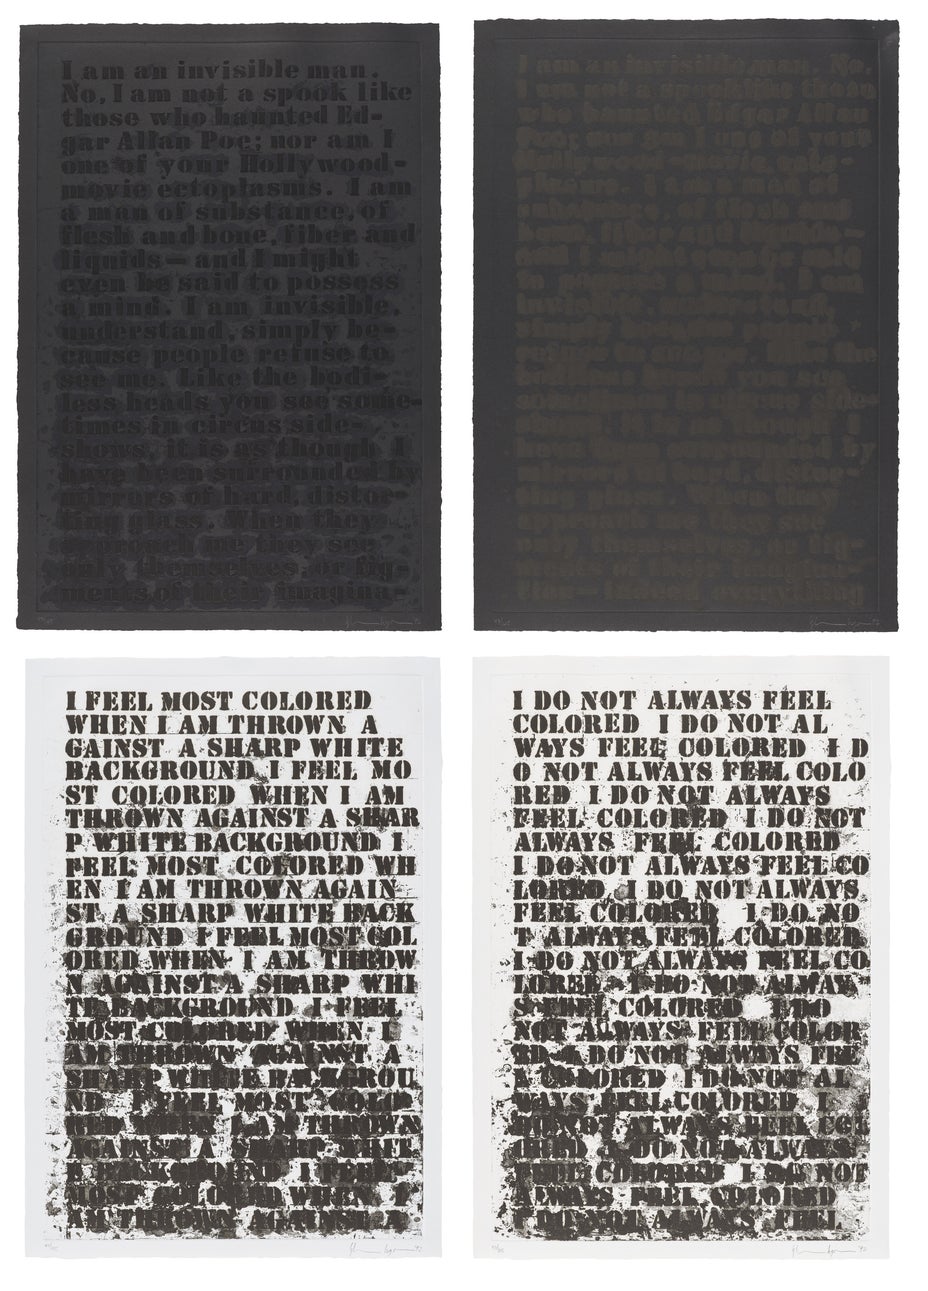 I am an invisible man.
No, I am not a spook like
those who haunted Ed-
gar Allan Poe; nor am I
one of your Hollywood-
movie ectoplasms. I am
a man of substance, of
flesh and bone, fiber and
liquids — and I might
even be said to possess
a mind. I am invisible,
understand, simply be-
cause people refuse to
see me. Like the bodi-
less heads you see some-
times in circus side-
shows, it is as though I
have been surrounded by
mirrors of hard, distor-
ting glass. When they
approach me they see
only themselves, or fig-
ments of their imagina-
I am an invisible man. No,
I am not a spook like those
who haunted Edgar Allan
Poe; nor am I one of your
I am a man of
substance, of flesh and
bone, fiber and
and I might even be said
to possess a mind. I am
invisible, understand,
simply because people
refuse to see me. Like the
bodiless heads you see
sometimes in circus side-
shows, it is as though I
have been surrounded by
mirrors of hard, distor-
ting glass. When they
approach me they see
only themselves, or fig-
ments of their imagina-
tion — indeed, everything
I FEEL MOST COLORED
WHEN I AM THROWN A
GAINST A SHARP WHITE
BACKGROUND I FEEL MO
ST COLORED WHEN I AM
THROWN AGAINST A SHAR
P WHITE BACKGROUND I
FEEL MOST COLORED WH
EN I AM THROWN AGAIN
ST A SHARP WHITE BACK
GROUND I FEEL MOST COL
ORED WHEN I AM THROW
N AGAINST A SHARP WHI
TE BACKGROUND I FEEL
MOST COLORED WHEN I
AM THROWN AGAINST A
SHARP WHITE BACKGROU
ND I FEEL MOST COLO
RED WHEN I AM THROWN
AGAINST A SHARP WHIT
E BACKGROUND I FEEL
MOST COLORED WHEN I
AM THROWN AGAINST A
I DO NOT ALWAYS FEEL
COLORED I DO NOT AL
WAYS FEEL COLORED I D
O NOT ALWAYS FEEL COLO
RED I DO NOT ALWAYS
FEEL COLORED I DO NOT
ALWAYS FEEL COLORED
I DO NOT ALWAYS FEEL CO
LORED I DO NOT ALWAYS
FEEL COLORED I DO NO
T ALWAYS FEEL COLORED
I DO NOT ALWAYS FEEL CO
LORED I DO NOT ALWAY
S FEEL COLORED I DO
NOT ALWAYS FEEL COLOR
ED I DO NOT ALWAYS FEE
L COLORED I DO NOT AL
WAYS FEEL COLORED I
DO NOT ALWAYS FEEL COL
ORED I DO NOT ALWAYS
FEEL COLORED I DO NOT
ALWAYS FEEL COLORED
I DO NOT ALWAYS FEEL